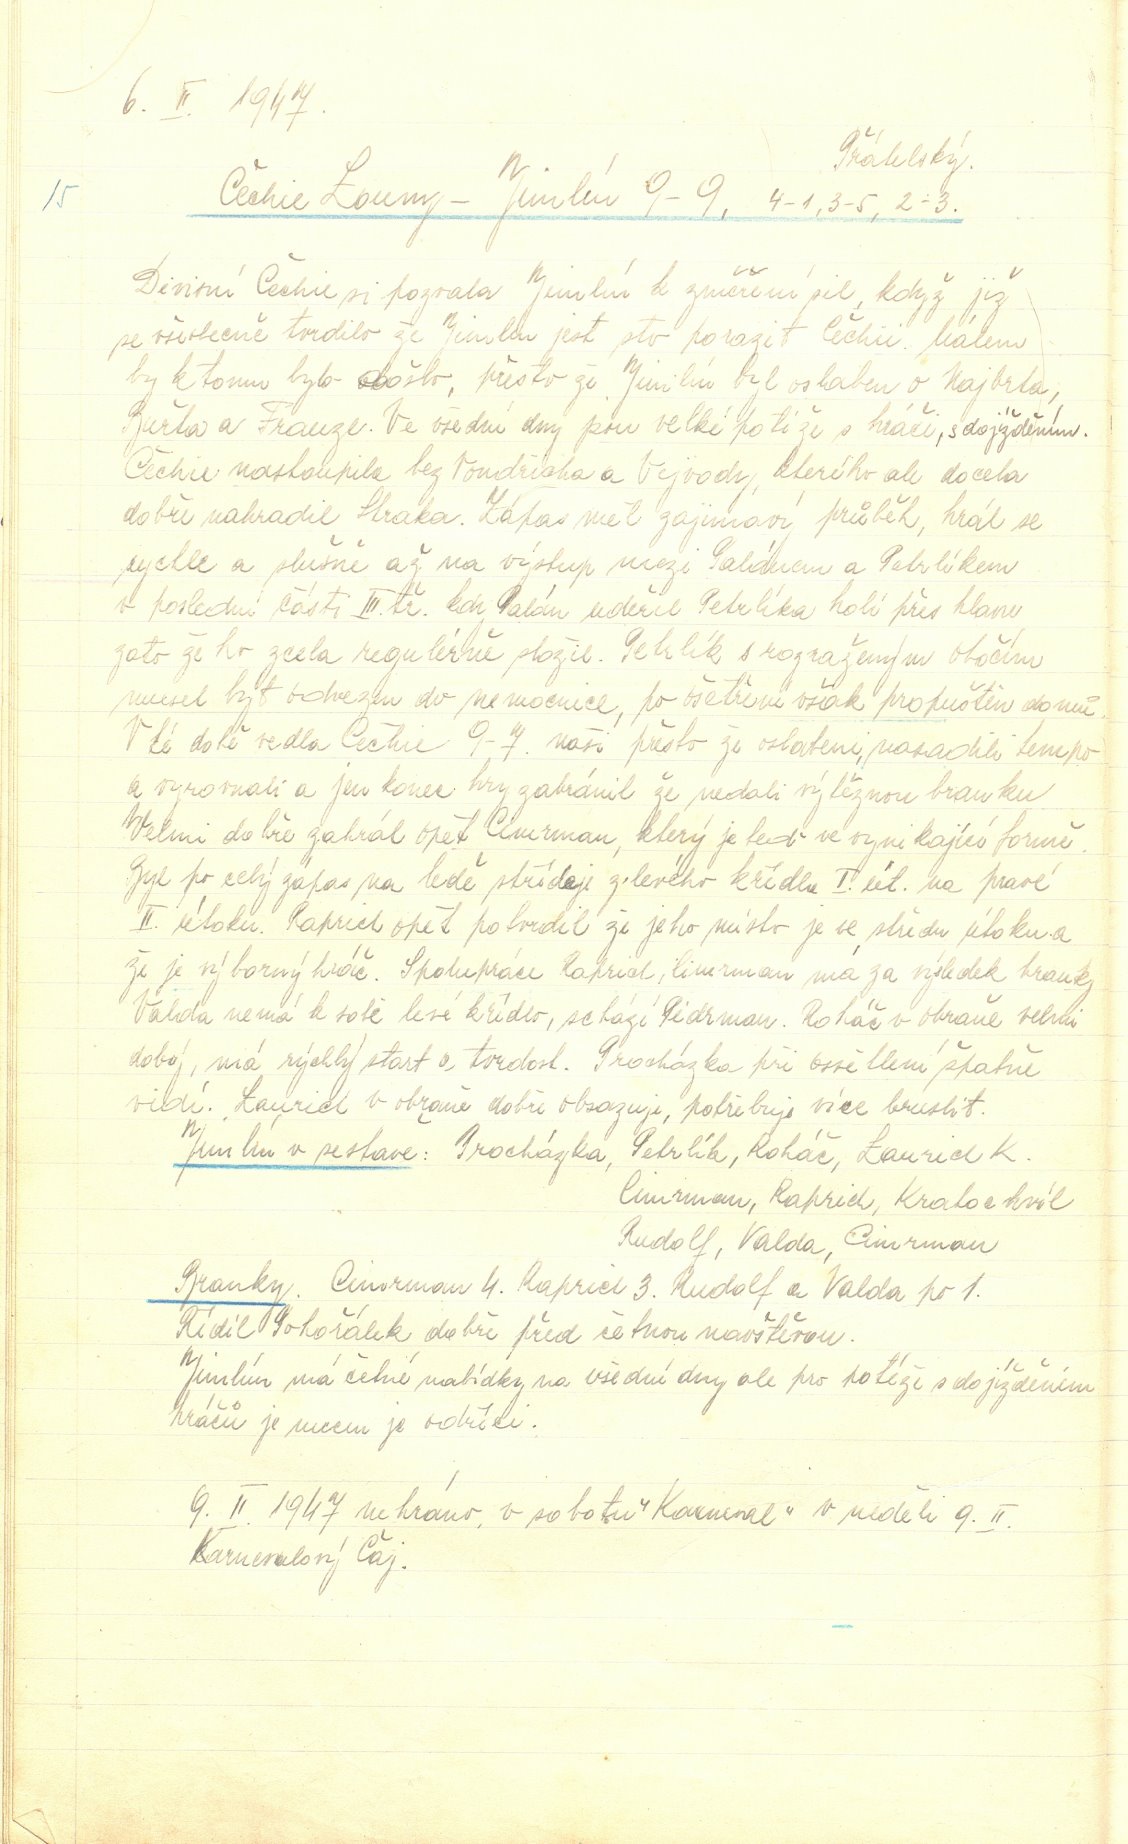 6. II. 1947.
Přátelský.
15
Čechie Louny – Jimlín 9-9, 4-1, 3-5, 2-3.
Divisní Čechie si pozvala Jimlín k změření sil, když již
se všeobecně tvrdilo že Jimlín jest sto porazit Čechii. Málem
by k tomu bylo došlo, přesto že Jimlín byl oslaben o Najbrta,
Burta a Franze. Ve všední dny jsou velké potíže s hráči, s dojížděním.
Čechie nastoupila bez Vondřicha a Vejvody, kterého ale docela
dobře nahradil Straka. Zápas měl zajímavý průběh, hrál se
rychle a slušně až na výstup mezi Palánem a Petrlíkem
v poslední části III. tř. kdy Palán udeřil Petrlíka holí přes hlavu
zato že ho zcela regulérně složil. Petrlík s rozraženým obočím
musel být odvezen do nemocnice, po ošetření však propuštěn domů.
V té době vedla Čechie 9-7. naši přesto že oslabeni, nasadili tempo
a vyrovnali a jen konec hry zabránil že nedali výtěznou branku
Velmi dobře zahrál opět Cimrman, který je teď ve vynikající formě.
Byl po celý zápas na ledě střídaje z levého křídla I. út. na pravé
II. útoku. Kaprid opět potvrdil že jeho místo je ve středu útoku a
že je výborný hráč. Spolupráce Kaprid, Cimrman má za výsledek branky
Valda nemá k sobě levé křídlo, schází Pédrman. Roháč v obraně velmi
dobrý, má rychlý start a tvrdost. Procházka při ossětlení špatně
vidí. Laurich v obraně dobře obsazuje, potřebuje více bruslit.
Jimlín v sestavě: Procházka, Petrlík, Roháč, Laurich K.
Cimrman, Kaprid, Kratochvíl
Rudolf, Valda, Cimrman
Branky. Cimrman 4. Kaprid 3. Rudolf a Valda po 1.
Řídil Pohořálek dobře před četnou návštěvou.
Jimlín má četné nabídky na všední dny ale pro potíže s dojížděním
hráčů je nucen je odříci.
9. II. 1947 nehráno, v sobotu "Karneval" v neděli 9. II.
Karnevalový Čaj.